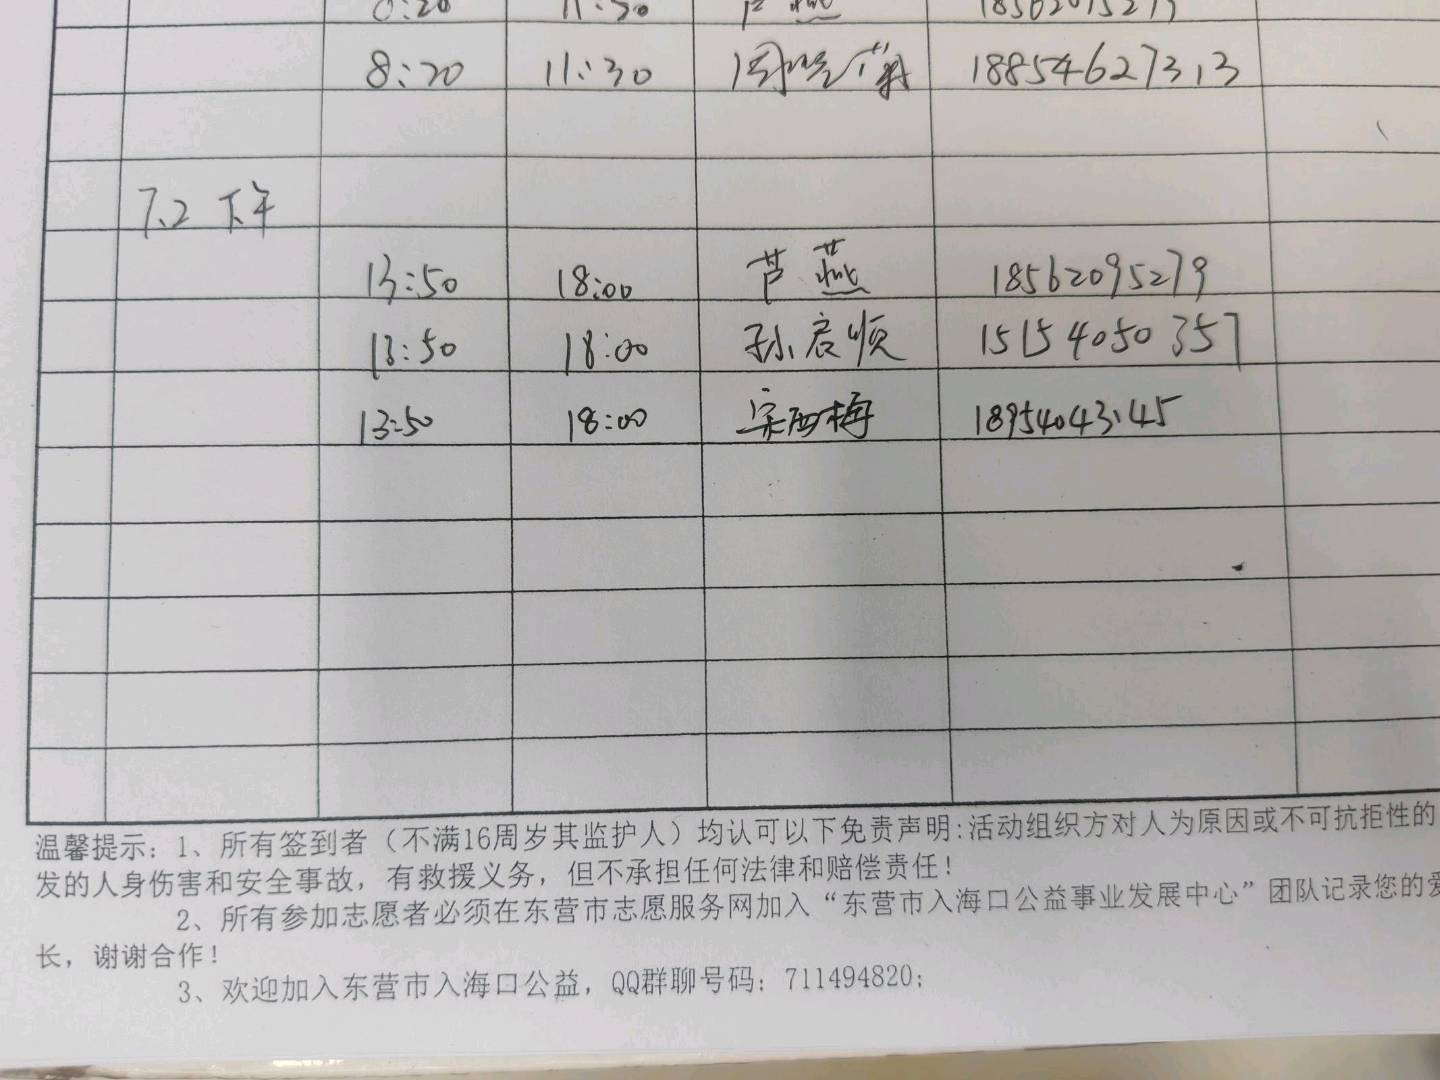 8:20 11:30 芦燕 18562095279
8:20 11:30 18854627313
7.2 下午
13:50 18:00 芦燕 18562095279
13:50 18:00 孙启顺 15154050357
13:50 18:00 宋西梅 18954043145
温馨提示：1、所有签到者（不满16周岁其监护人）均认可以下免责声明:活动组织方对人为原因或不可抗拒性的
发的人身伤害和安全事故，有救援义务，但不承担任何法律和赔偿责任！
2、所有参加志愿者必须在东营市志愿服务网加入“东营市入海口公益事业发展中心”团队记录您的爱
长，谢谢合作！
3、欢迎加入东营市入海口公益，QQ群聊号码：711494820；